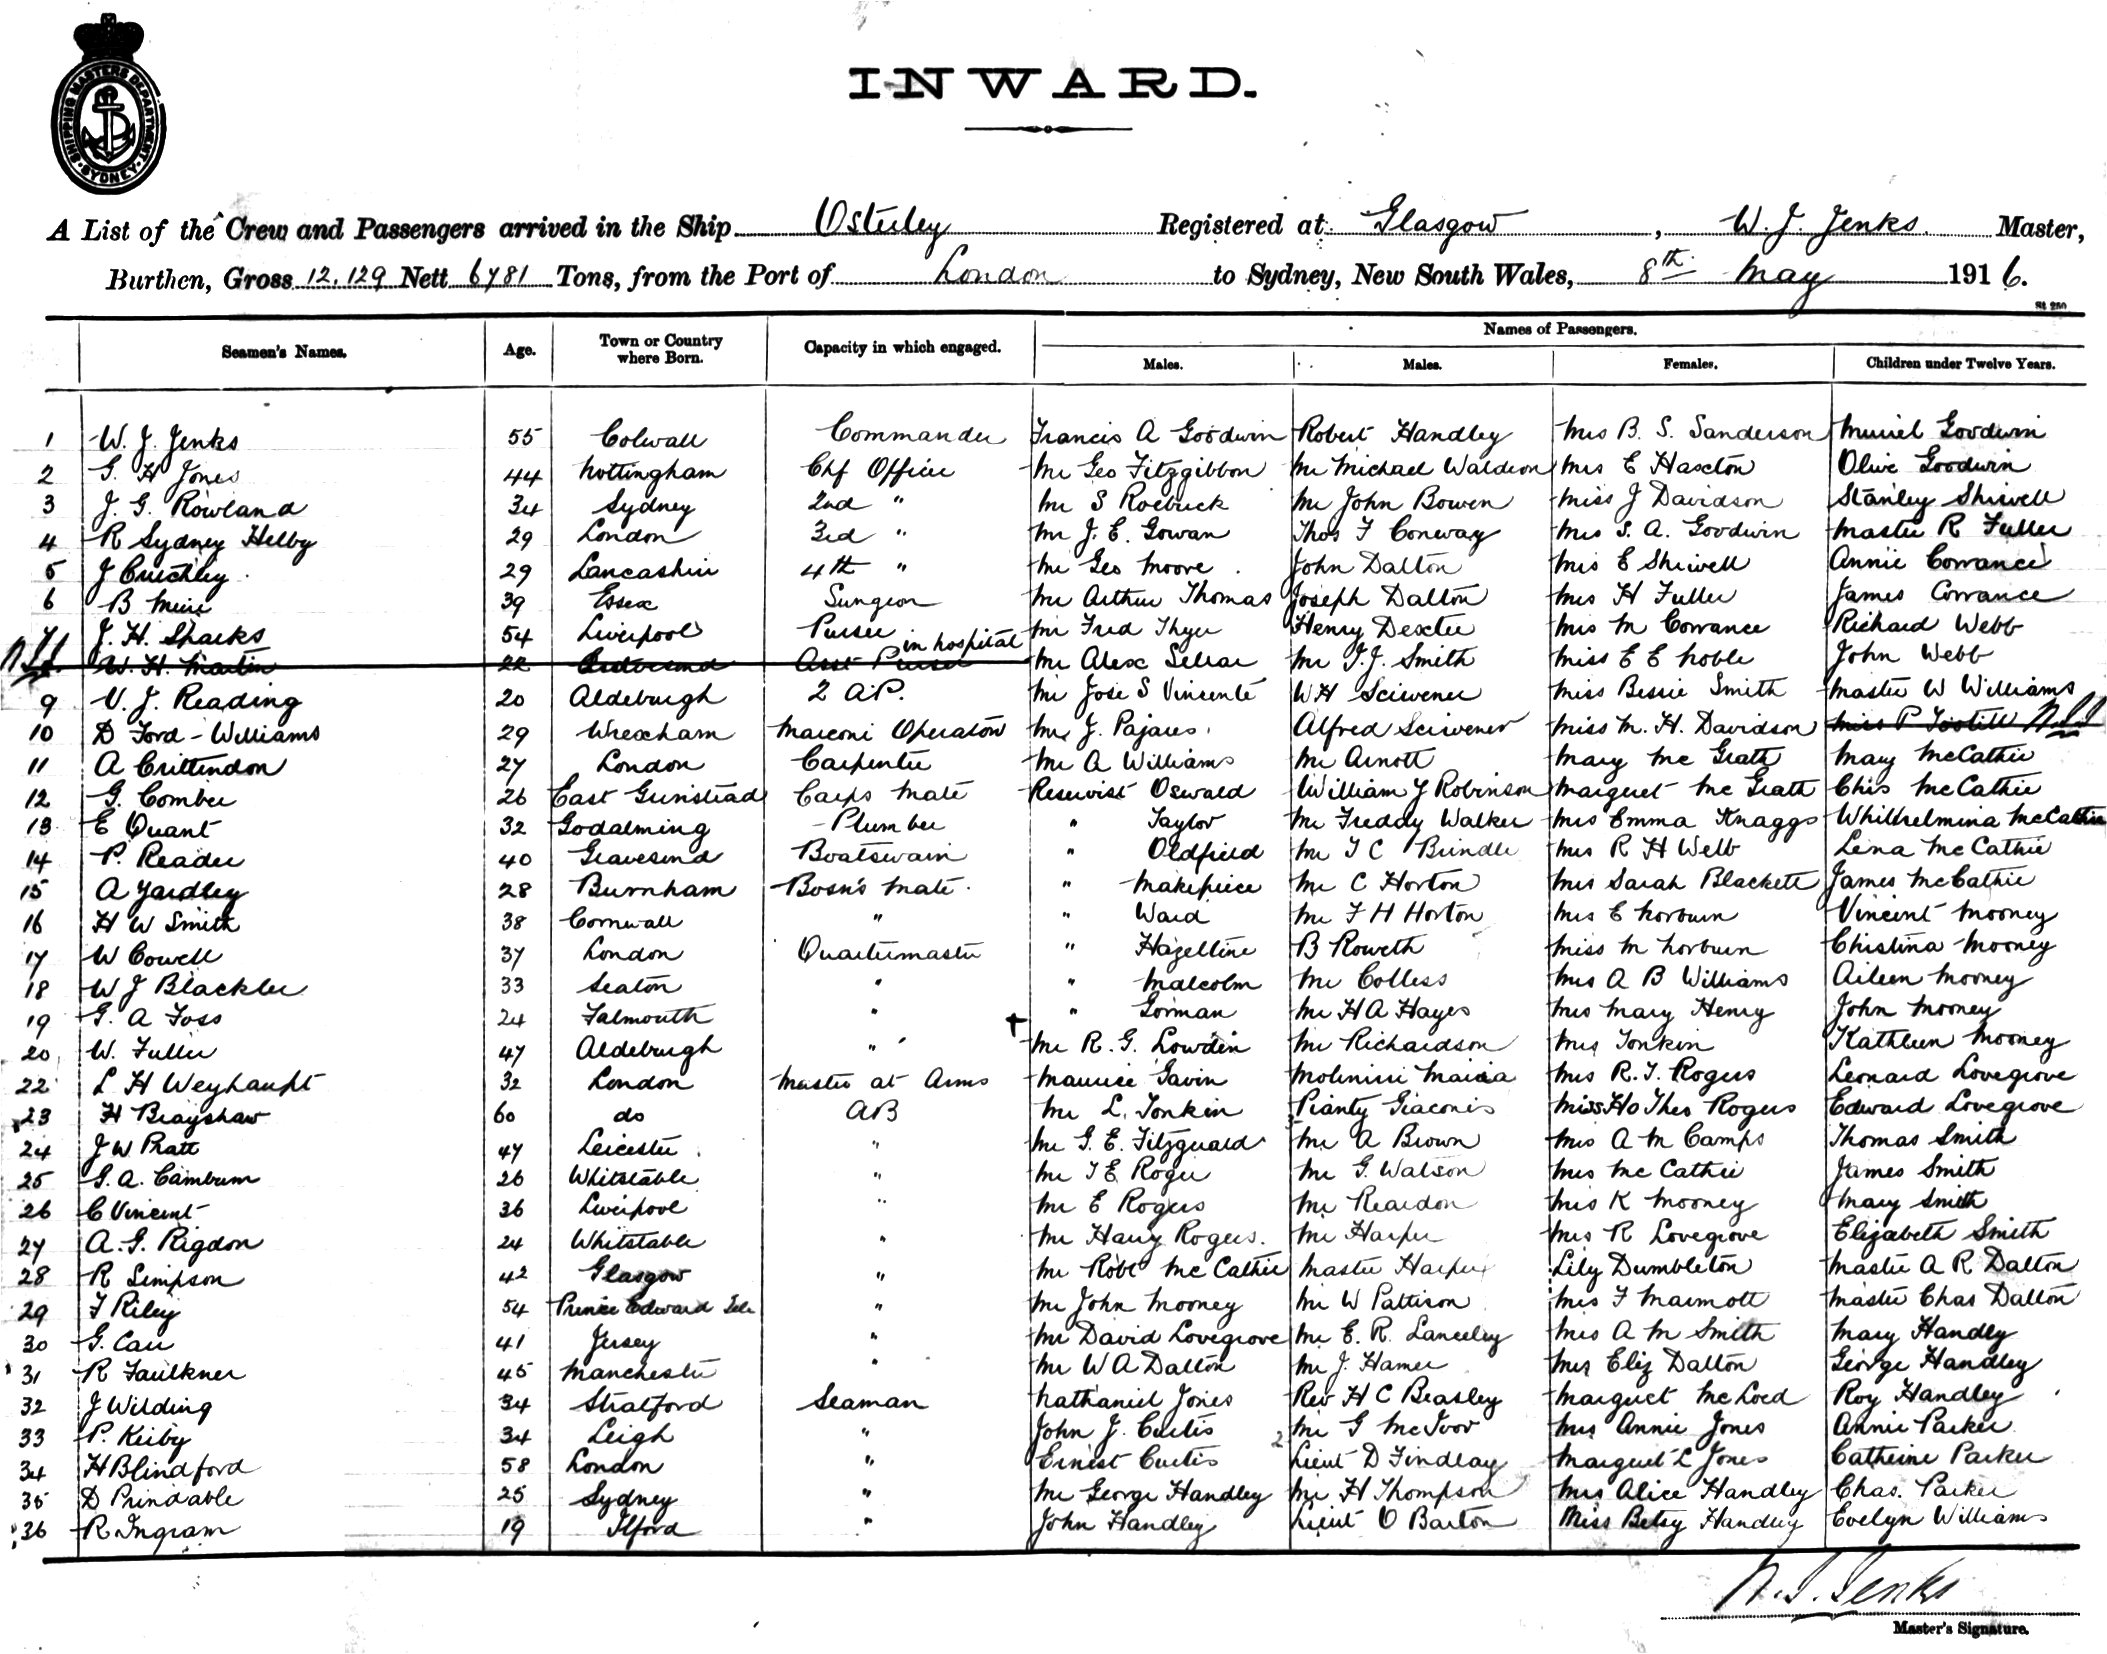 SHIPPING MASTERS DEPARTMENT
SYDNEY
INWARD.
A List of the Crew and Passengers arrived in the Ship Osterley Registered at Glasgow, W. J. Jenks Master,
Burthen, Gross 12.129 Nett 6781 Tons, from the Port of London to Sydney, New South Wales, 8th May 1916.
St 250
Names of Passengers.
Seamen's Names. Age. Town or Country where Born. Capacity in which engaged. Males. Males. Females. Children under Twelve Years.
1 W. J. Jenks 55 Colwall Commander Francis A Goodwin Robert Handley Mrs B. S. Sanderson Muriel Goodwin
2 G. H Jones 44 Nottingham Chf Officer Mr Geo Fitzgibbon Mr Michael Waldron Mrs E Haxton Olive Goodwin
3 J. G. Rowland 34 Sydney 2nd " Mr S Roebuck Mr John Bowen Miss J Davidson Stanley Shirvell
4 R Sydney Helby 29 London 3rd " Mr J. E. Gowan Thos F Conway Mrs S. A. Goodwin Master R Fuller
5 J Critchley 29 Lancashire 4th " Mr Geo Moore John Dalton Mrs E Shirvell Annie Corrance
6 B Muir 39 Essex Surgeon Mr Arthur Thomas Joseph Dalton Mrs H Fuller James Corrance
7 J. H. Sparks 54 Liverpool Purser Mr Fred Thyer Henry Dexter Mrs M Corrance Richard Webb
W. H. Martin 22 Asst Purser in hospital Mr Alex Mr T. J. Smith Miss E E Noble John Webb
9 V. J. Reading 20 Aldeburgh 2 A.P. Mr Jose S Vincente W H Scrivener Miss Bessie Smith Master W Williams
10 D Ford-Williams 29 Wrexham Marconi Operator Mr J. Pajares Alfred Scrivener Miss M. H. Davidson Miss P Tootill
11 A Crittendon 27 London Carpenter Mr A Williams Mr Arnott Mary McGrath Mary McCathie
12 G. Comber 26 East Grinstead Carps Mate Reservist Oswald William J Robinson Margaret McGrath Chris McCathie
13 E Quant 32 Godalming Plumber " Taylor Mr Freddy Walker Mrs Emma Knaggs Whilhelmina McCathie
14 P. Reader 40 Gravesend Boatswain " Oldfield Mr T C Brindle Mrs R H Webb Lena McCathie
15 A Yardley 28 Burnham Bosn's Mate. " Makepiece Mr C Horton Mrs Sarah Blackett James McCathie
16 H W Smith 38 Cornwall " " Ward Mr F H Horton Mrs E Norburn Vincent Mooney
17 W Cowell 37 London Quartermaster " Hazeltine B Roweth Miss M Norburn Christina Mooney
18 W J Blackler 33 Seaton " " Malcolm Mr Colless Mrs A B Williams Aileen Mooney
19 G. A Foss 24 Falmouth " " Gorman Mr H A Hayes Mrs Mary Henry John Mooney
20 W. Fuller 47 Aldeburgh " Mr R. G. Lowden Mr Richardson Mrs Tonkin Kathleen Mooney
22 L H Weyhaupt 32 London Master at Arms Maurice Gavin Mrs R. T. Rogers Leonard Lovegrove
23 H Brayshaw 60 do AB Mr L. Tonkin Pianty Giaconis Miss Ho Theo Rogers Edward Lovegrove
24 J W Pratt 47 Leicester " Mr G. E. Fitzgerald Mr A Brown Mrs A M Camps Thomas Smith
25 G. A. Camburn 26 Whitstable " Mr T E Roger Mr G. Watson Mrs McCathie James Smith
26 C Vincent 36 Liverpool " Mr E Rogers Mr Reardon Mrs K Mooney Mary Smith
27 A. G. Rigdon 24 Whitstable " Mr Harry Rogers. Mr Harper Mrs R Lovegrove Elizabeth Smith
28 R Simpson 42 Glasgow " Mr Robt McCathie Master Harper Lily Dumbleton Master A R Dalton
29 F Riley 54 Prince Edward Isle " Mr John Mooney Mr W Pattison Mrs F Marmott Master Chas Dalton
30 G. Carr 41 Jersey " Mr David Lovegrove Mr E. R. Lanceley Mrs A M Smith Mary Handley
31 R Faulkner 45 Manchester " Mr W A Dalton Mr J. Hamer Mrs Eliz Dalton George Handley
32 J Wilding 34 Stratford Seaman Nathaniel Jones Rev H C Beasley Margaret McLoed Roy Handley
33 P. Kirby 34 Leigh " John J. Curtis Mr G McIvor Mrs Annie Jones Annie Parker
34 H Blindford 58 London " Ernest Curtis Lieut D Findlay Margaret L Jones Catherine Parker
35 D Prindable 25 Sydney " Mr George Handley Mr H Thompson Mrs Alice Handley Chas. Parker
36 R Ingram 19 Ilford " John Handley Lieut O Barton Miss Betsy Handley Evelyn Williams
W. J. Jenks
Master's Signature.